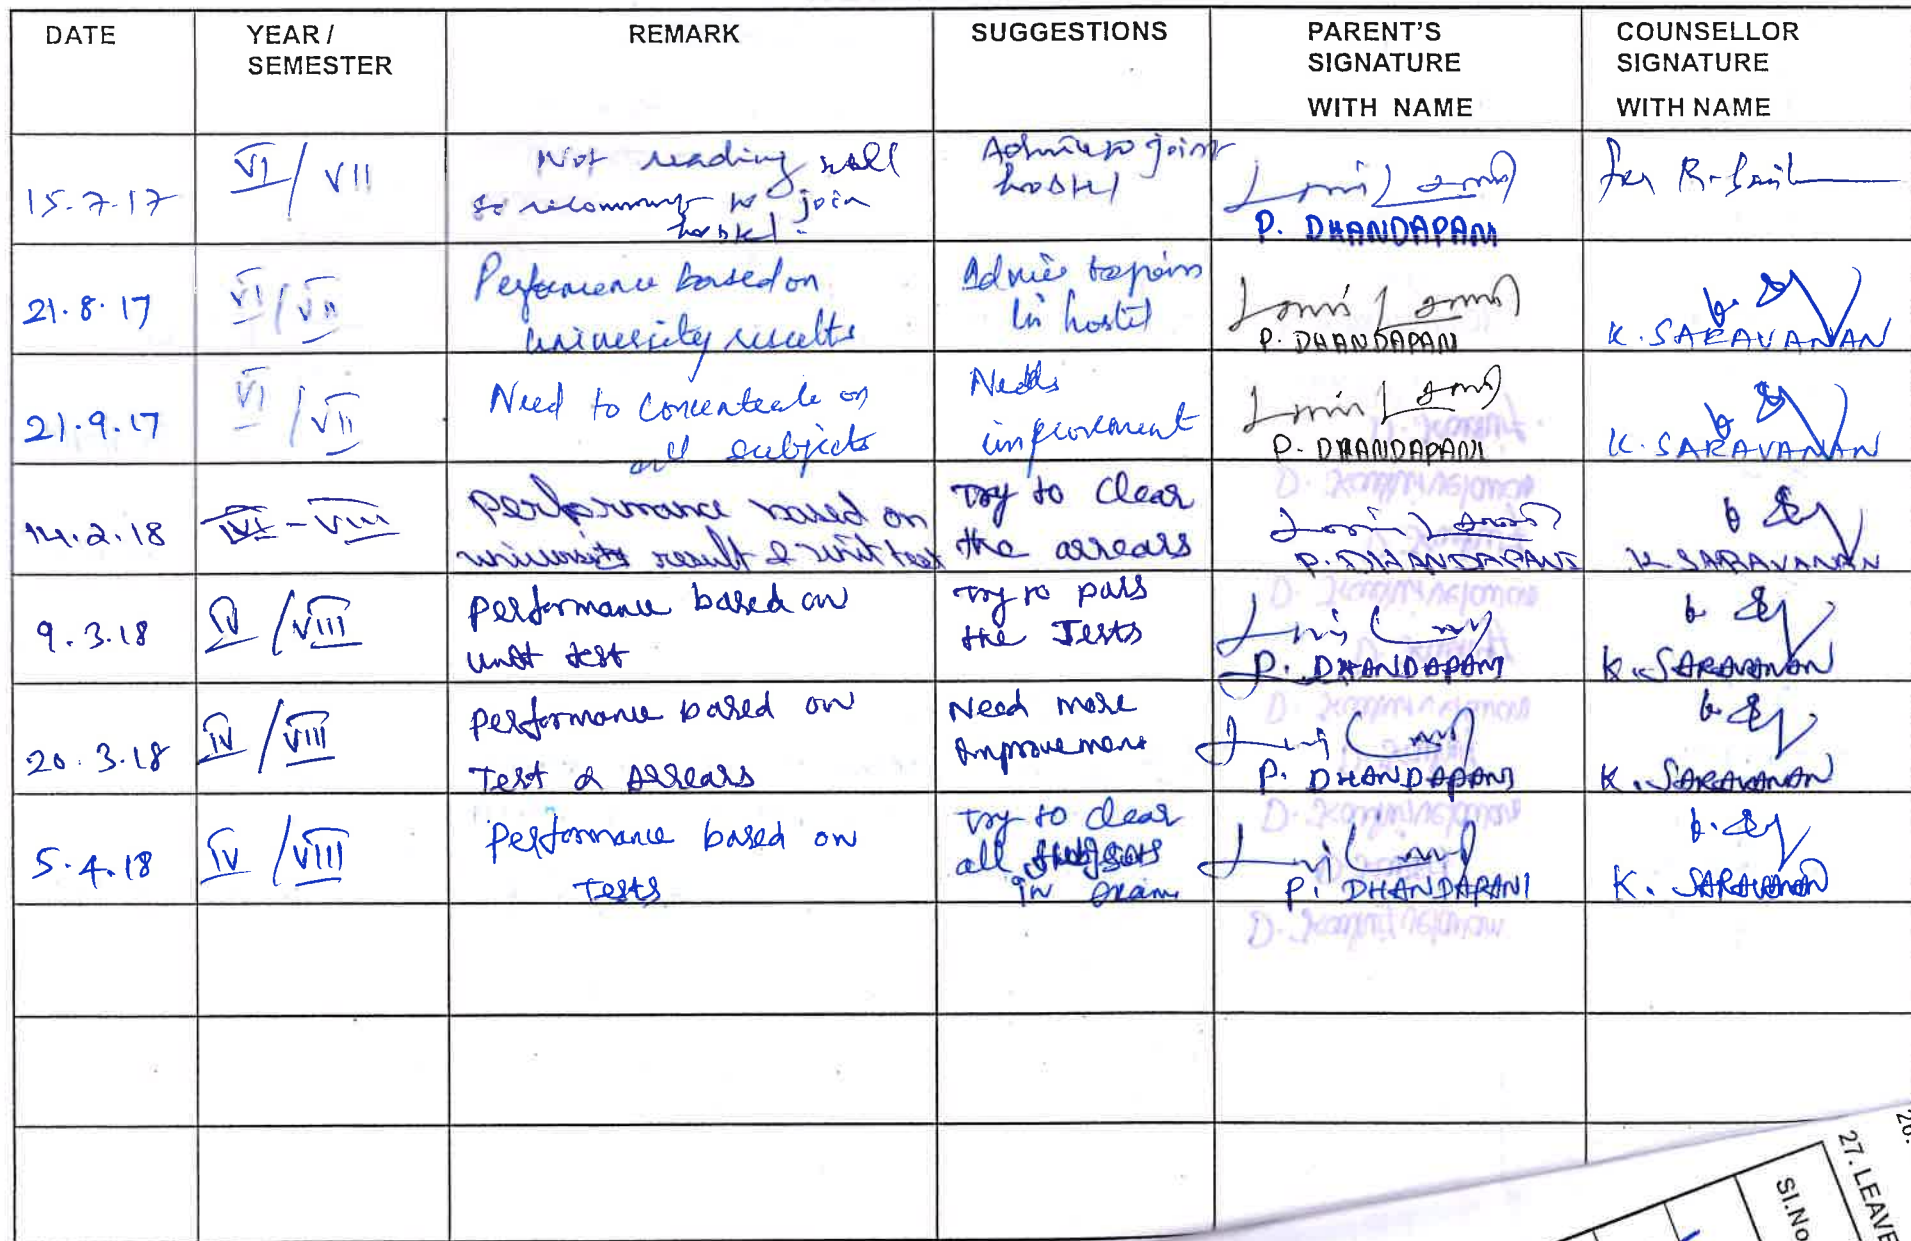 DATE
YEAR / SEMESTER
REMARK
SUGGESTIONS
PARENT'S SIGNATURE WITH NAME
COUNSELLOR SIGNATURE WITH NAME
15.7.17
VI / VII
Not reading well
so recommend to join
hostel.
join
hostel
P. DHANDAPANI
for
21.8.17
VI / VII
Performance based on
university results
in hostel
P. DHANDAPANI
K. SARAVANAN
21.9.17
VI / VII
Need to concentrate on
all subjects
Needs
improvement
P. DHANDAPANI
K. SARAVANAN
14.2.18
VIII
Performance based on
university result & unit test
Try to clear
the arrears
P. DHANDAPANI
K. SARAVANAN
9.3.18
IV / VIII
Performance based on
unit test
Try to pass
the Tests
P. DHANDAPANI
K. SARAVANAN
20.3.18
IV / VIII
Performance based on
Test & Arrears
Need more
Improvement
P. DHANDAPANI
K. SARAVANAN
5.4.18
IV / VIII
Performance based on
Tests
Try to clear
all subjects
in exam
P. DHANDAPANI
K. SARAVANAN
27. LEAVE
Sl.No